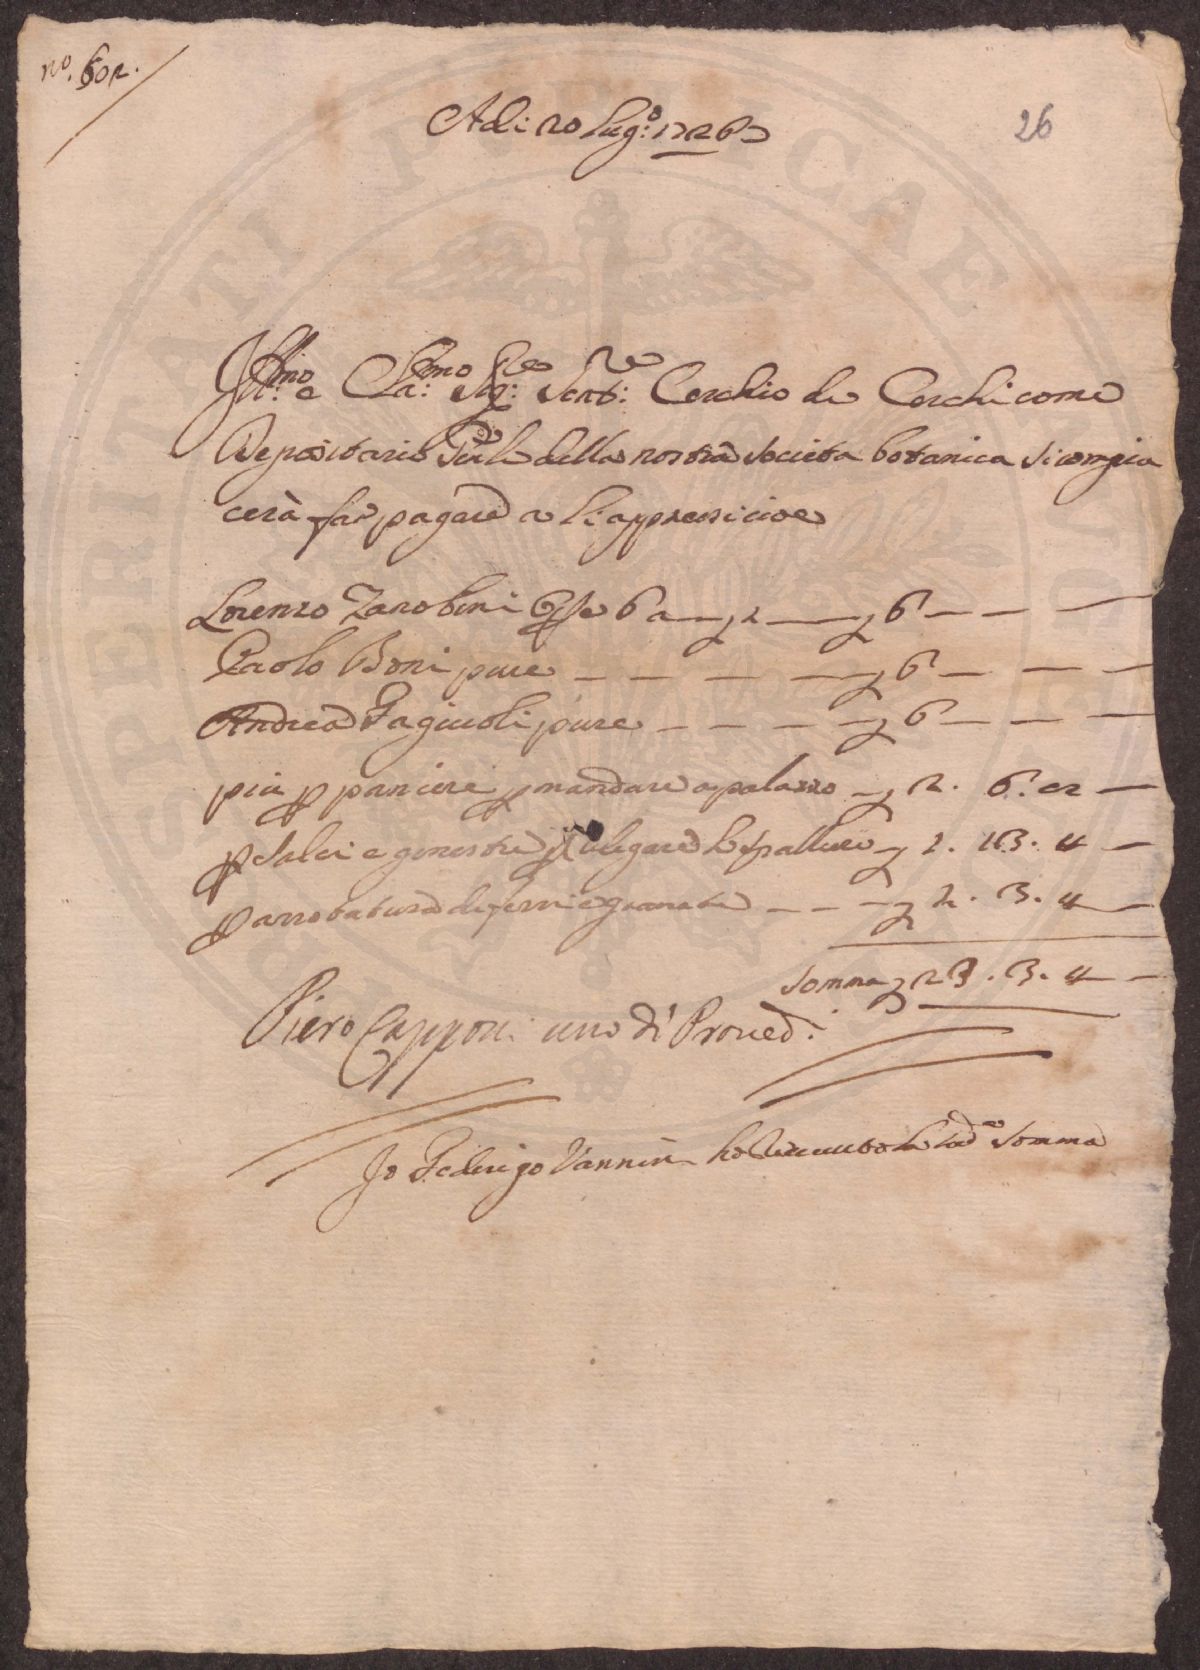 no. 602.
Adi 20 Lug.o 1726
26
Ill.mo e Cla.mo Sig.re Sen.re Cerchio de Cerchi come
Depositario Gen.le della nostra Società botanica si compia
cerà far pagare a li appresso cioe
Lorenzo Zanobini Gste 6 a — £ 1 — £ 6 — —
Paolo Boni pure — — — — £ 6 — — —
Andrea Fagiuoli pure — — — — £ 6 — — —
piu p paniere p mandare a palazzo — £ 2. 6. 8 —
p Salci e ginestre p legare le spalliere £ 1. 13. 4 —
p arrotatura di ferri e granate — — — £ 1. 3. 4 —
Somma £ 23. 3. 4 —
Piero Capponi uno di Proved.i
Io Federigo Vannini ho riceuuto la sud.a Somma
SPERITATI PUBLICAE